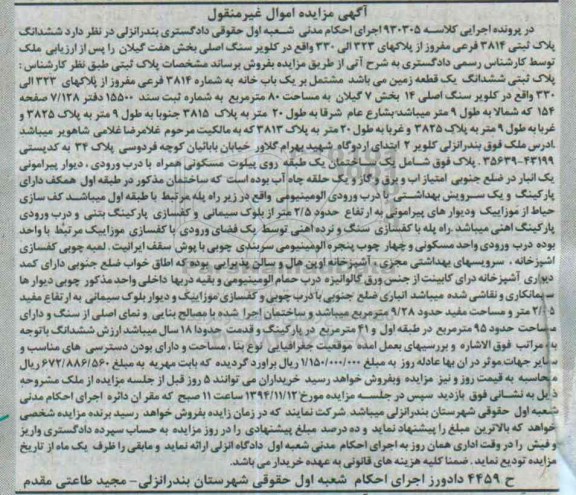 آگهی مزایده اموال غیرمنقول
در پرونده اجرایی کلاسه ۹۳۰۳۰۵ اجرای احکام مدنی شعبه اول حقوقی دادگستری بندرانزلی در نظر دارد ششدانگ
پلاک ثبتی ۳۸۱۴ فرعی مفروز از پلاکهای ۳۲۳ الی ۳۳۰ واقع در کلویر سنگ اصلی بخش هفت گیلان را پس از ارزیابی ملک
توسط کارشناس رسمی دادگستری به شرح آتی از طریق مزایده بفروش برساند مشخصات پلاک ثبتی طبق نظر کارشناس :
پلاک ثبتی ششدانگ یک قطعه زمین می باشد مشتمل بر یک باب خانه به شماره ۳۸۱۴ فرعی مفروز از پلاکهای ۳۲۳ الی
۳۳۰ واقع در کلویر سنگ اصلی ۱۴ بخش ۷ گیلان به مساحت ۸۰ مترمربع به شماره ثبت سند ۱۵۵۰۰ دفتر ۷/۱۳۸ صفحه
۱۵۴ که شمالا به طول ۹ متر میباشد بشارع عام شرقا به طول ۲۰ متر به پلاک ۳۸۱۵ جنوبا به طول ۹ متر به پلاک ۳۸۲۵ و
غربا به طول ۹ متر به پلاک ۳۸۲۵ و غربا به طول ۲۰ متر به پلاک ۳۸۱۳ که به مالکیت مرحوم غلامرضا غلامی شاهویر میباشد
.ادرس ملک فوق بندرانزلی کلویر ۲ ابتدای اردوگاه شهید بهرام گلاور خیابان بابائیان کوچه فردوسی پلاک ۳۴ به کدپستی
۴۳۱۹۹-۳۵۶۳۹ . پلاک فوق شامل یک ساختمان یک طبقه روی پیلوت مسکونی همراه با درب ورودی ، دیوار پیرامونی
یک انبار در ضلع جنوبی امتیاز اب و برق و گاز و یک حلقه چاه آب بوده است که ساختمان مذکور در طبقه اول همکف دارای
پارکینگ و یک سرویس بهداشتی با درب ورودی الومینیومی واقع در زیر راه پله مرتبط با طبقه اول میباشد کف سازی
حیاط از موزاییک ودیوار های پیرامونی به ارتفاع حدود ۲/۵ متر از بلوک سیمانی و کفسازی پارکینگ بتنی و درب ورودی
پارکینگ اهنی میباشد راه پله با کفسازی سنگ و نرده اهنی توسط یک فضای ورودی با کفسازی موزاییک مرتبط با واحد
بوده درب ورودی واحد مسکونی و چهار چوب پنجره الومینیومی سربندی چوبی با پوش سقف ایرانیت . لمبه چوبی کفسازی
اشپزخانه ، سرویسهای بهداشتی مجزی ، آشپزخانه اوپن هال و سالن پذیرایی بوده که اطاق خواب ضلع جنوبی دارای کمد
دیواری آشپزخانه درای کابینت از جنس ورق گالوانیزه درب حمام الومینیومی و بقیه دربها داخلی واحد مذکور چوبی دیوار ها
سیمانکاری و نقاشی شده میباشد انباری ضلع جنوبی با درب چوبی و کفسازی موزاییک و دیوار بلوک سیمانی به ارتفاع مفید
۲/۰۵ متر و مساحت مفید حدود ۹/۲۸ مترمربع میباشد و ساختمان اجرا شده با مصالح بنایی و نمای اصلی از سنگ و دارای
مساحت حدود ۹۵ مترمربع در طبقه اول و ۴۱ مترمربع در پارکینگ و قدمت حدودا ۱۸ سال میباشد ارزش ششدانگ با توجه
به مراتب فوق الاشاره و بررسیهای بعمل امده موقعیت جغرافیایی نوع بنا ، مساحت و دارای بودن دسترسی های مناسب و
سایر جهات موثر در ان بها عادله روز به مبلغ ۱/۱۵۰/۰۰۰/۰۰۰ ریال براورد گردیده که بابت مهریه به مبلغ ۶۷۲/۸۸۶/۵۶۰ ریال
محاسبه به قیمت روز و نیز مزایده وبفروش خواهد رسید خریداران می توانند ۵ روز قبل از جلسه مزایده از ملک مشروحه
ذیل به نشانی فوق بازدید سپس در جلسه مزایده مورخ ۱۳۹۴/۱۱/۱۳ ساعت ۱۱ صبح که مقر ان دائره اجرای احکام مدنی
شعبه اول حقوقی شهرستان بندرانزلی میباشد شرکت نمایند که در زمان زایده بفروش خواهد رسید برنده مزایده شخصی
خواهد که بالاترین مبلغ را پیشنهاد نماید و ده درصد مبلغ پیشنهادی را در روز مزایده به حساب سپرده دادگستری واریز
و فیش را در وقت اداری همان روز به اجرای احکام مدنی شعبه اول دادگاه انزلی ارائه نماید و مابقی را ظرف یک ماه از تاریخ
مزایده تودیع نماید . ضمنا کلیه هزینه های قانونی به عهده خریدار می باشد.
ح ۴۴۵۹ دادورز اجرای احکام شعبه اول حقوقی شهرستان بندرانزلی- مجید طاعتی مقدم